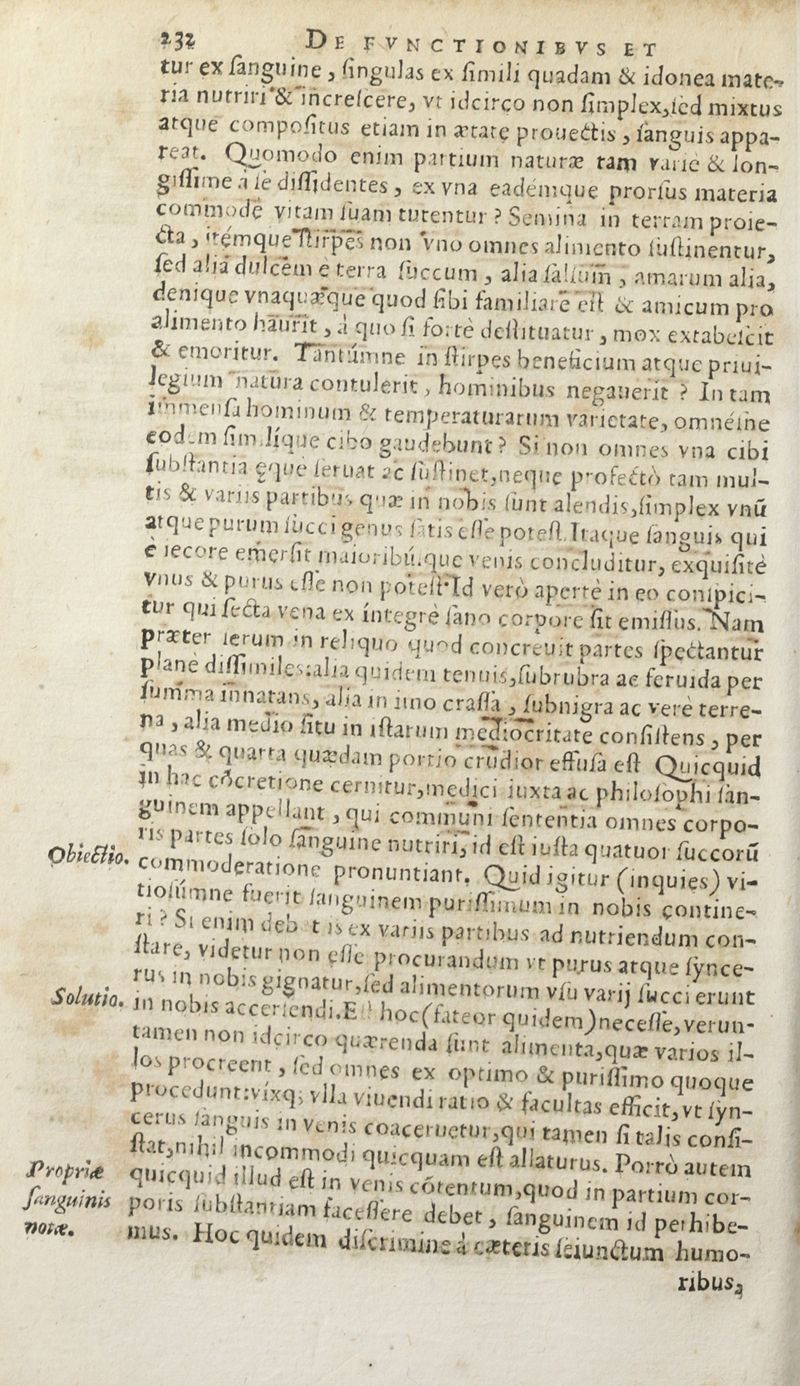 232 DE FVNCTIONIBVS ET
tur ex sanguine, singulas ex simili quadam & idonea mate-
ria nutriri & increscere, vt idcirco non simplex, sed mixtus
atque compositus etiam in ætate prouectis, sanguis appa-
reat. Quomodo enim partium naturæ tam variè & lon-
gissimè à se dissidentes, ex vna eadémque prorsus materia
commodè vitam suam tutentur? Semina in terram proie-
cta, itémque stirpes non vno omnes alimento sustinentur,
sed alia dulcem è terra succum, alia salsum, amarum alia,
denique vnaquæque quod sibi familiare est & amicum pro
alimento haurit, à quo si fortè destituatur, mox extabescit
& emoritur. Tantúmne in stirpes beneficium atque priui-
legium natura contulerit, hominibus negauerit? In tam
immensa hominum & temperaturarum varietate, omnéine
eodem similique cibo gaudebunt? Si non omnes vna cibi
substantia æque seruat ac sustinet, neque profectò tam mul-
tis & variis partibus quæ in nobis sunt alendis, simplex vnū
atque purum succi genus satis esse potest. Itaque sanguis qui
è iecore emersit maioribúsque venis concluditur, exquisitè
vnus & purus esse non potest. Id verò apertè in eo conspici-
tur qui secta vena ex integrè sano corpore sit emissus. Nam
præter serum in reliquo quod concreuit partes spectantur
plane dissimiles: alia quidem tenuis, subrubra ac feruida per
summa innatans, alia in imo crassa, subnigra ac verè terre-
na, alia medio situ in istarum mediocritate consistens, per
quas & quarta quædam portio crudior effusa est. Quicquid
in hac cōcretione cernitur, medici iuxta ac philosophi san-
guinem appellant, qui communi sententia omnes corpo-
ris partes solo sanguine nutriri, id est iusta quatuor succorū
Obiectio. commoderatione pronuntiant. Quid igitur (inquies) vi-
tiosumne fuerit sanguinem purissimum in nobis contine-
ri? Si enim debet is ex variis partibus ad nutriendum con-
stare, videtur non esse procurandum vt purus atque synce-
rus in nobis gignatur, sed alimentorum vsu varij succi erunt
Solutio. in nobis accersendi. Est hoc (fateor quidem) necesse, verun-
tamen non idcirco quærenda sunt alimenta, quæ varios il-
los procreent, sed omnes ex optimo & purissimo quoque
procedunt: vixq; vlla viuendi ratio & facultas efficit, vt syn-
cerus sanguis in venis coaceruetur, qui tamen si talis consi-
stat, nihil incommodi quicquam est allaturus. Porrò autem
Propriæ quicquid illud est in venis cōtentum, quod in partium cor-
sanguinis poris substantiam facessere debet, sanguinem id perhibe-
notæ. mus. Hoc quidem discrimine à cæteris seiunctum humo-
ribus,